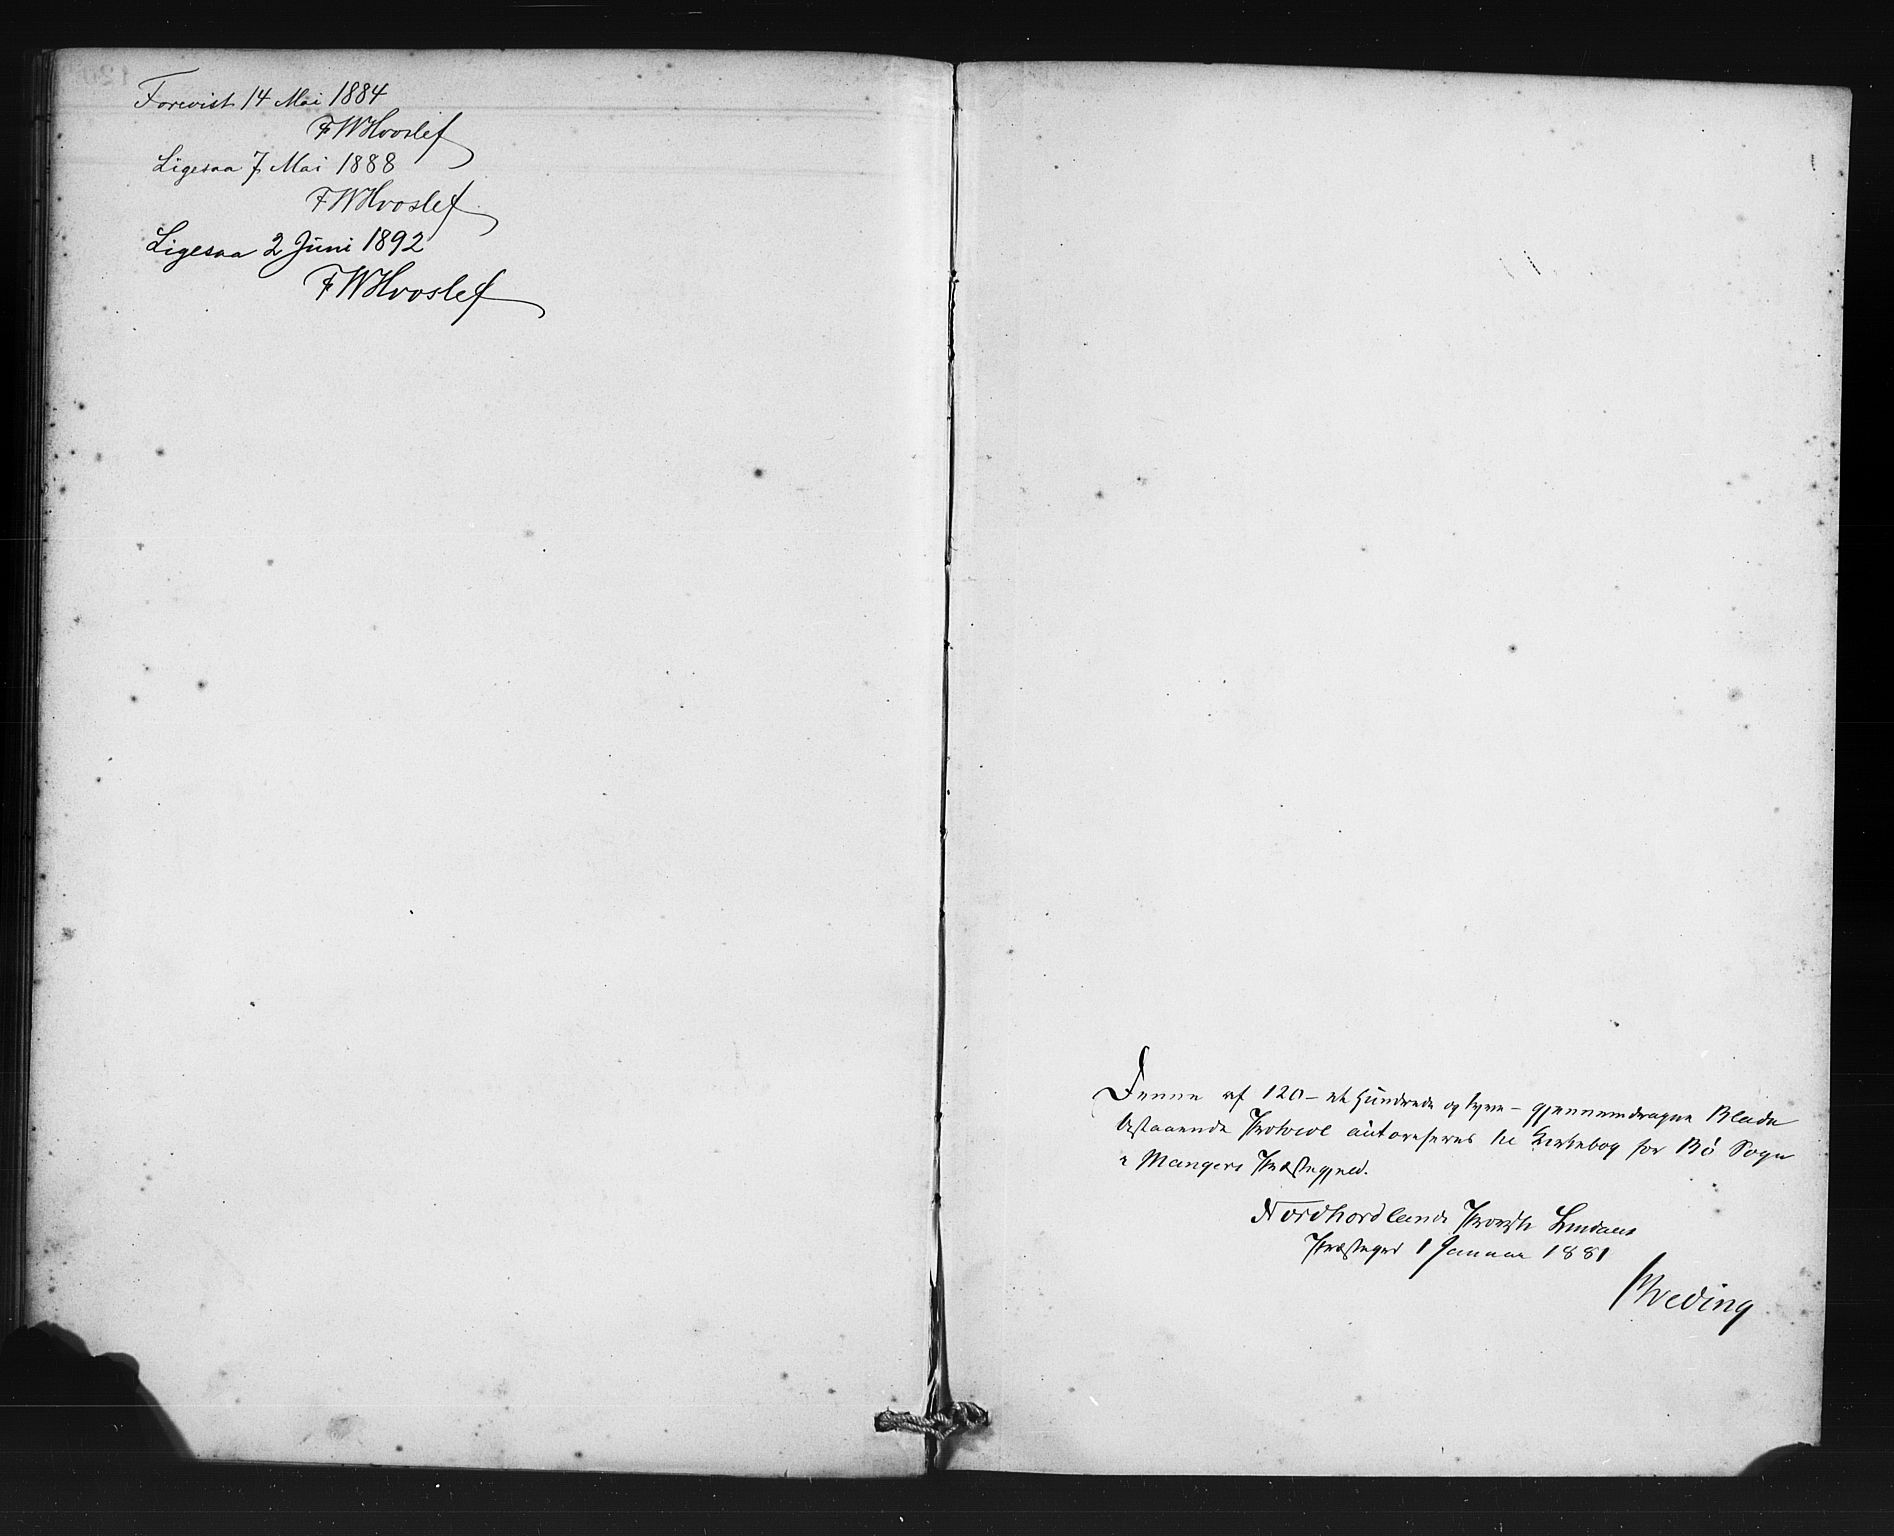 Forevist 14 Mai 1884
FWHvoslef
Ligesaa 7 Mai 1888
FWHvoslef
Ligesaa 2 Juni 1892
FWHvoslef
Denne af 120 – et Hundrede og tyve – gjennemdragne Blade
bestaaende Protocol autoriseres til Kirkebog for Bø Sogn
i Mangers Præstegjeld.
Nordhordlands Provsti Lindaas
Præstegrd 1 Januar 1881
Hveding